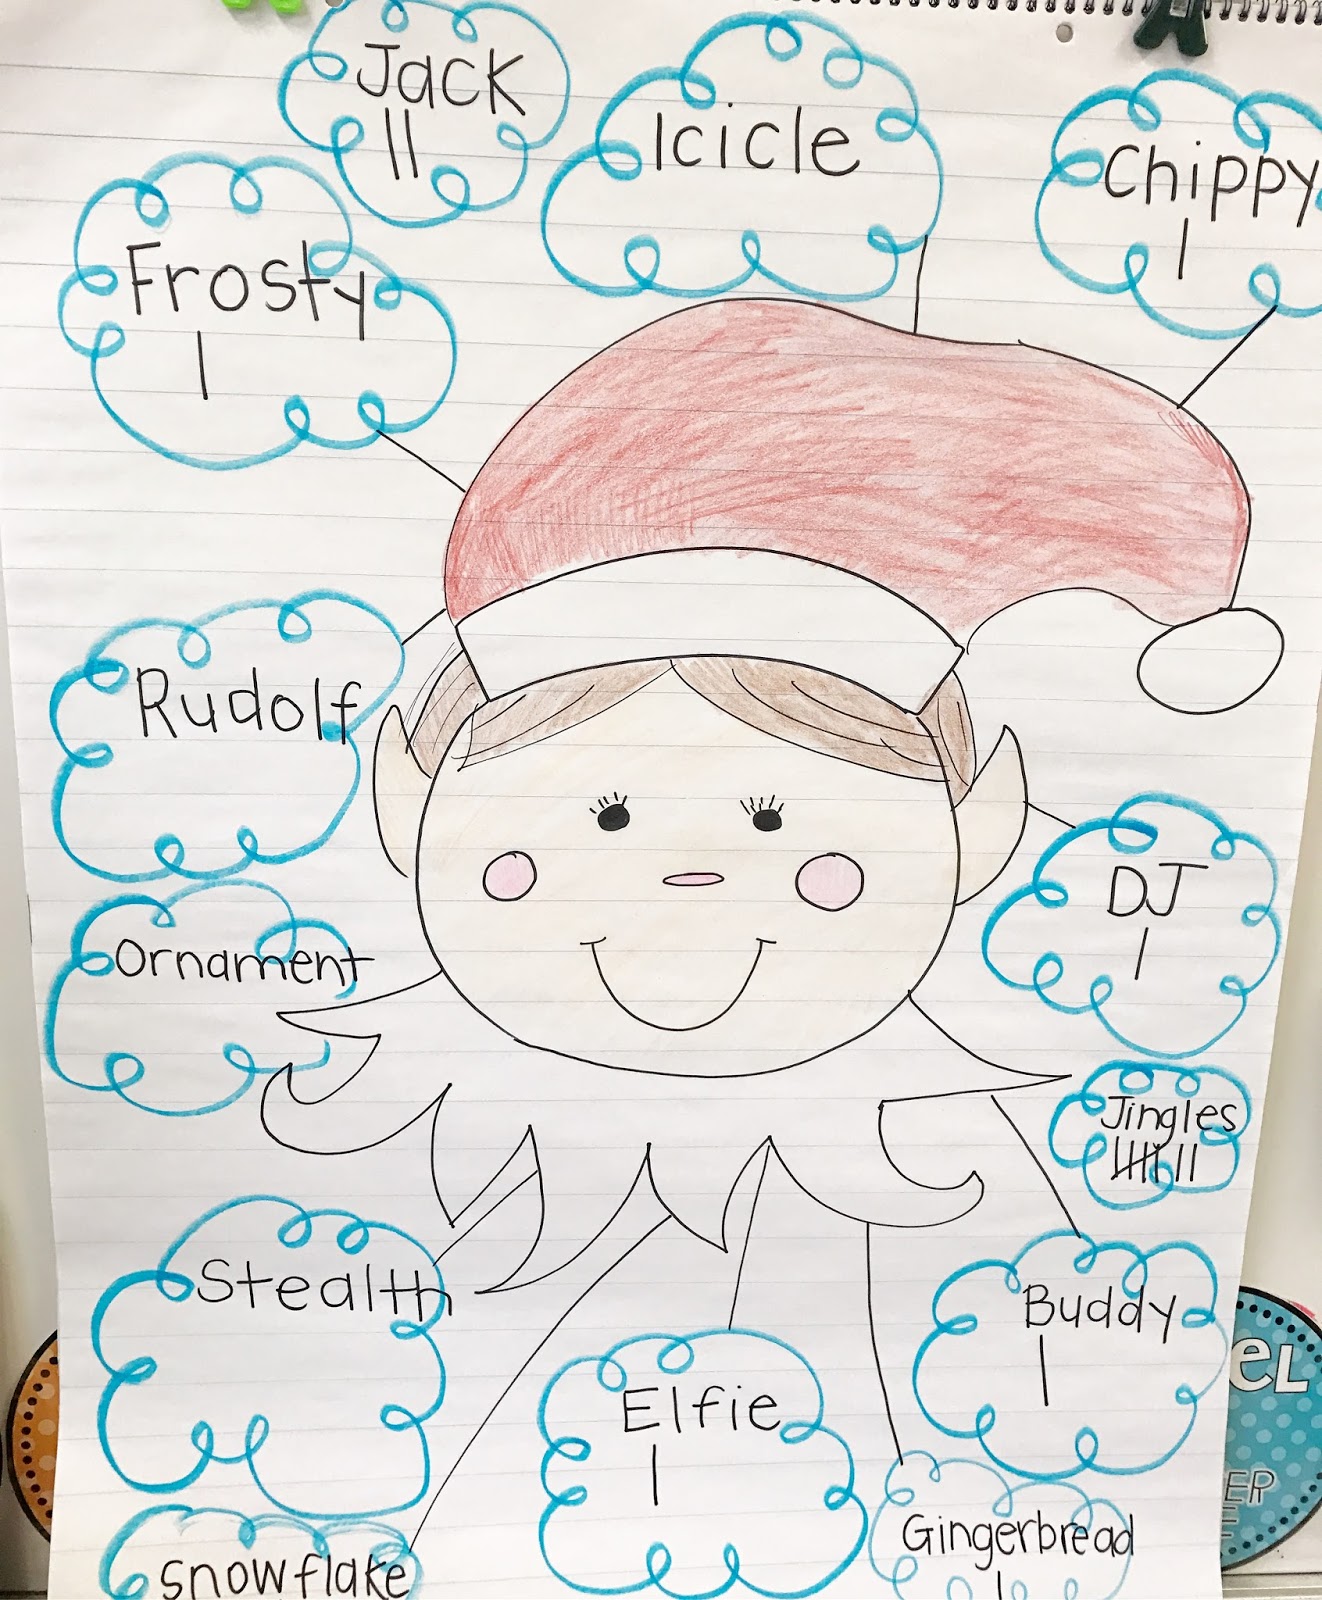 Jack
||
Icicle
Chippy
|
Frosty
|
Rudolf
Ornament
DJ
|
Jingles
卌 ||
Stealth
Buddy
|
Elfie
|
Gingerbread
|
snowflake
EL
ER